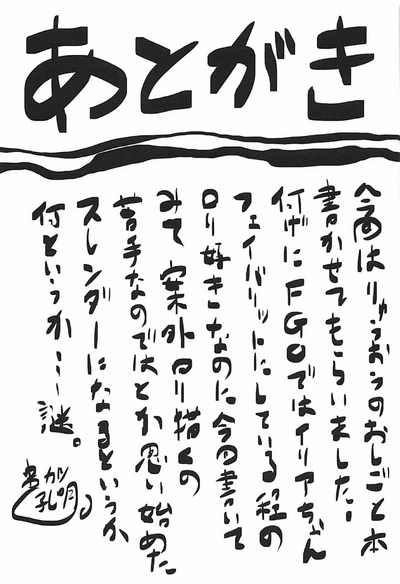 あとがき
今回はりゅうおうのおしごと本
書かせてもらいました!
付けにFGOではイリアちゃん
フェイバリットにしている程の
ロリ好きなのに今回書いて
みて 案外ロリ描くの
苦手なのではとか思い始めた
スレンダーになるというか
何というか…謎。